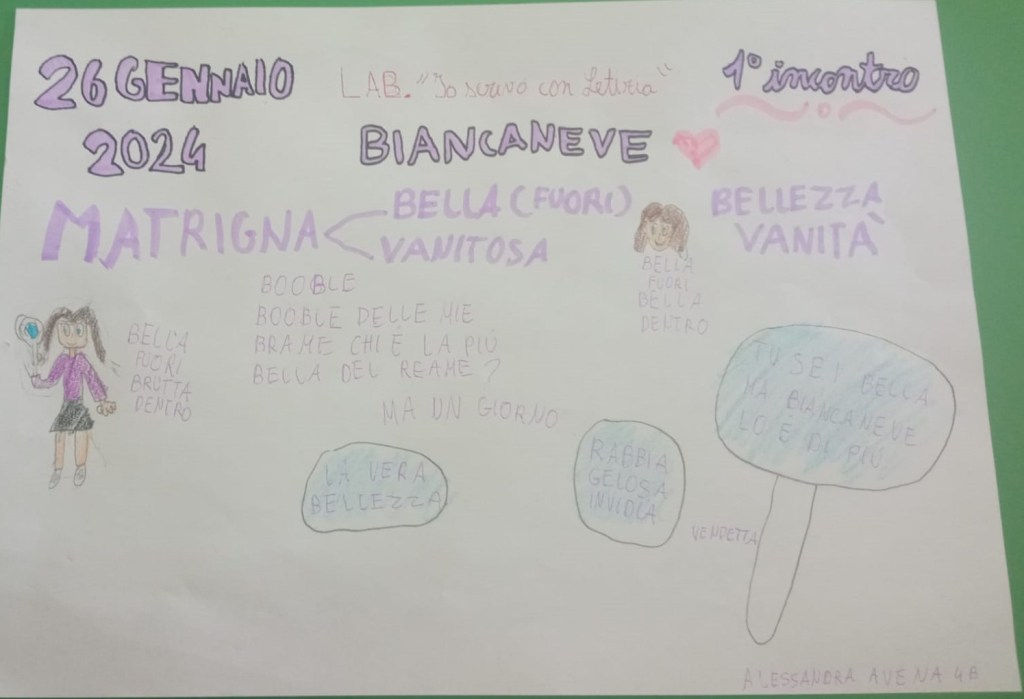 26 GENNAIO
2024
LAB. "Io scrivo con Letizia"
1° incontro
BIANCANEVE
MATRIGNA
BELLA (FUORI)
VANITOSA
BELLEZZA
VANITÀ
BELLA
FUORI
BELLA
DENTRO
BELLA
FUORI
BRUTTA
DENTRO
BOOBLE
BOOBLE DELLE MIE
BRAME CHI È LA PIÙ
BELLA DEL REAME?
MA UN GIORNO
TU SEI BELLA
MA BIANCANEVE
LO È DI PIÙ
LA VERA
BELLEZZA
RABBIA
GELOSA
INVIDIA
VENDETTA
ALESSANDRA AVENA 4B